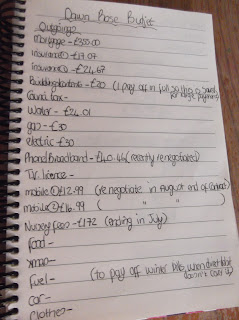 Dawn Rose Budget
Outgoings
mortgage - £355.00
insurance① - £17.07
insurance② - £24.67
Building/contents - £20 (I pay off in full so this is saved
for large payment)
Council tax -
Water - £24.01
gas - £30
electric - £30
Phone/Broadband - £40.44 (recently renegotiated)
T.V. licence -
mobile① £12.99 (re negotiate in August end of contract)
mobile② £16.99 ( " " )
Nursery fees - £172 (ending in July)
food -
xmas -
Fuel - (to pay off winter bills when direct debit
doesn't cover it)
car -
Clothes -